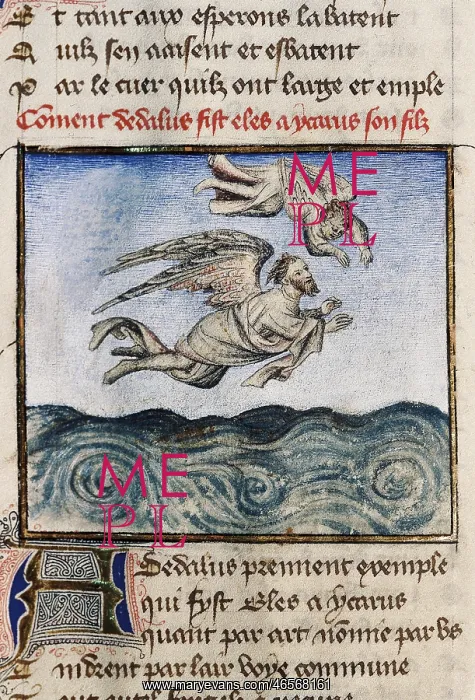 E t tant aux esperons la batent
A uilz sen aaisent et esbatent
P ar le cuer quilz ont large et emple
Cõment dedalus fist eles a ycarus son filz
ME
PL
ME
PL
A Dedalus prennent exemple
qui fyst Eles a ycarus
quant par art nõme par
par lair voye commune
www.maryevans.com/46568161